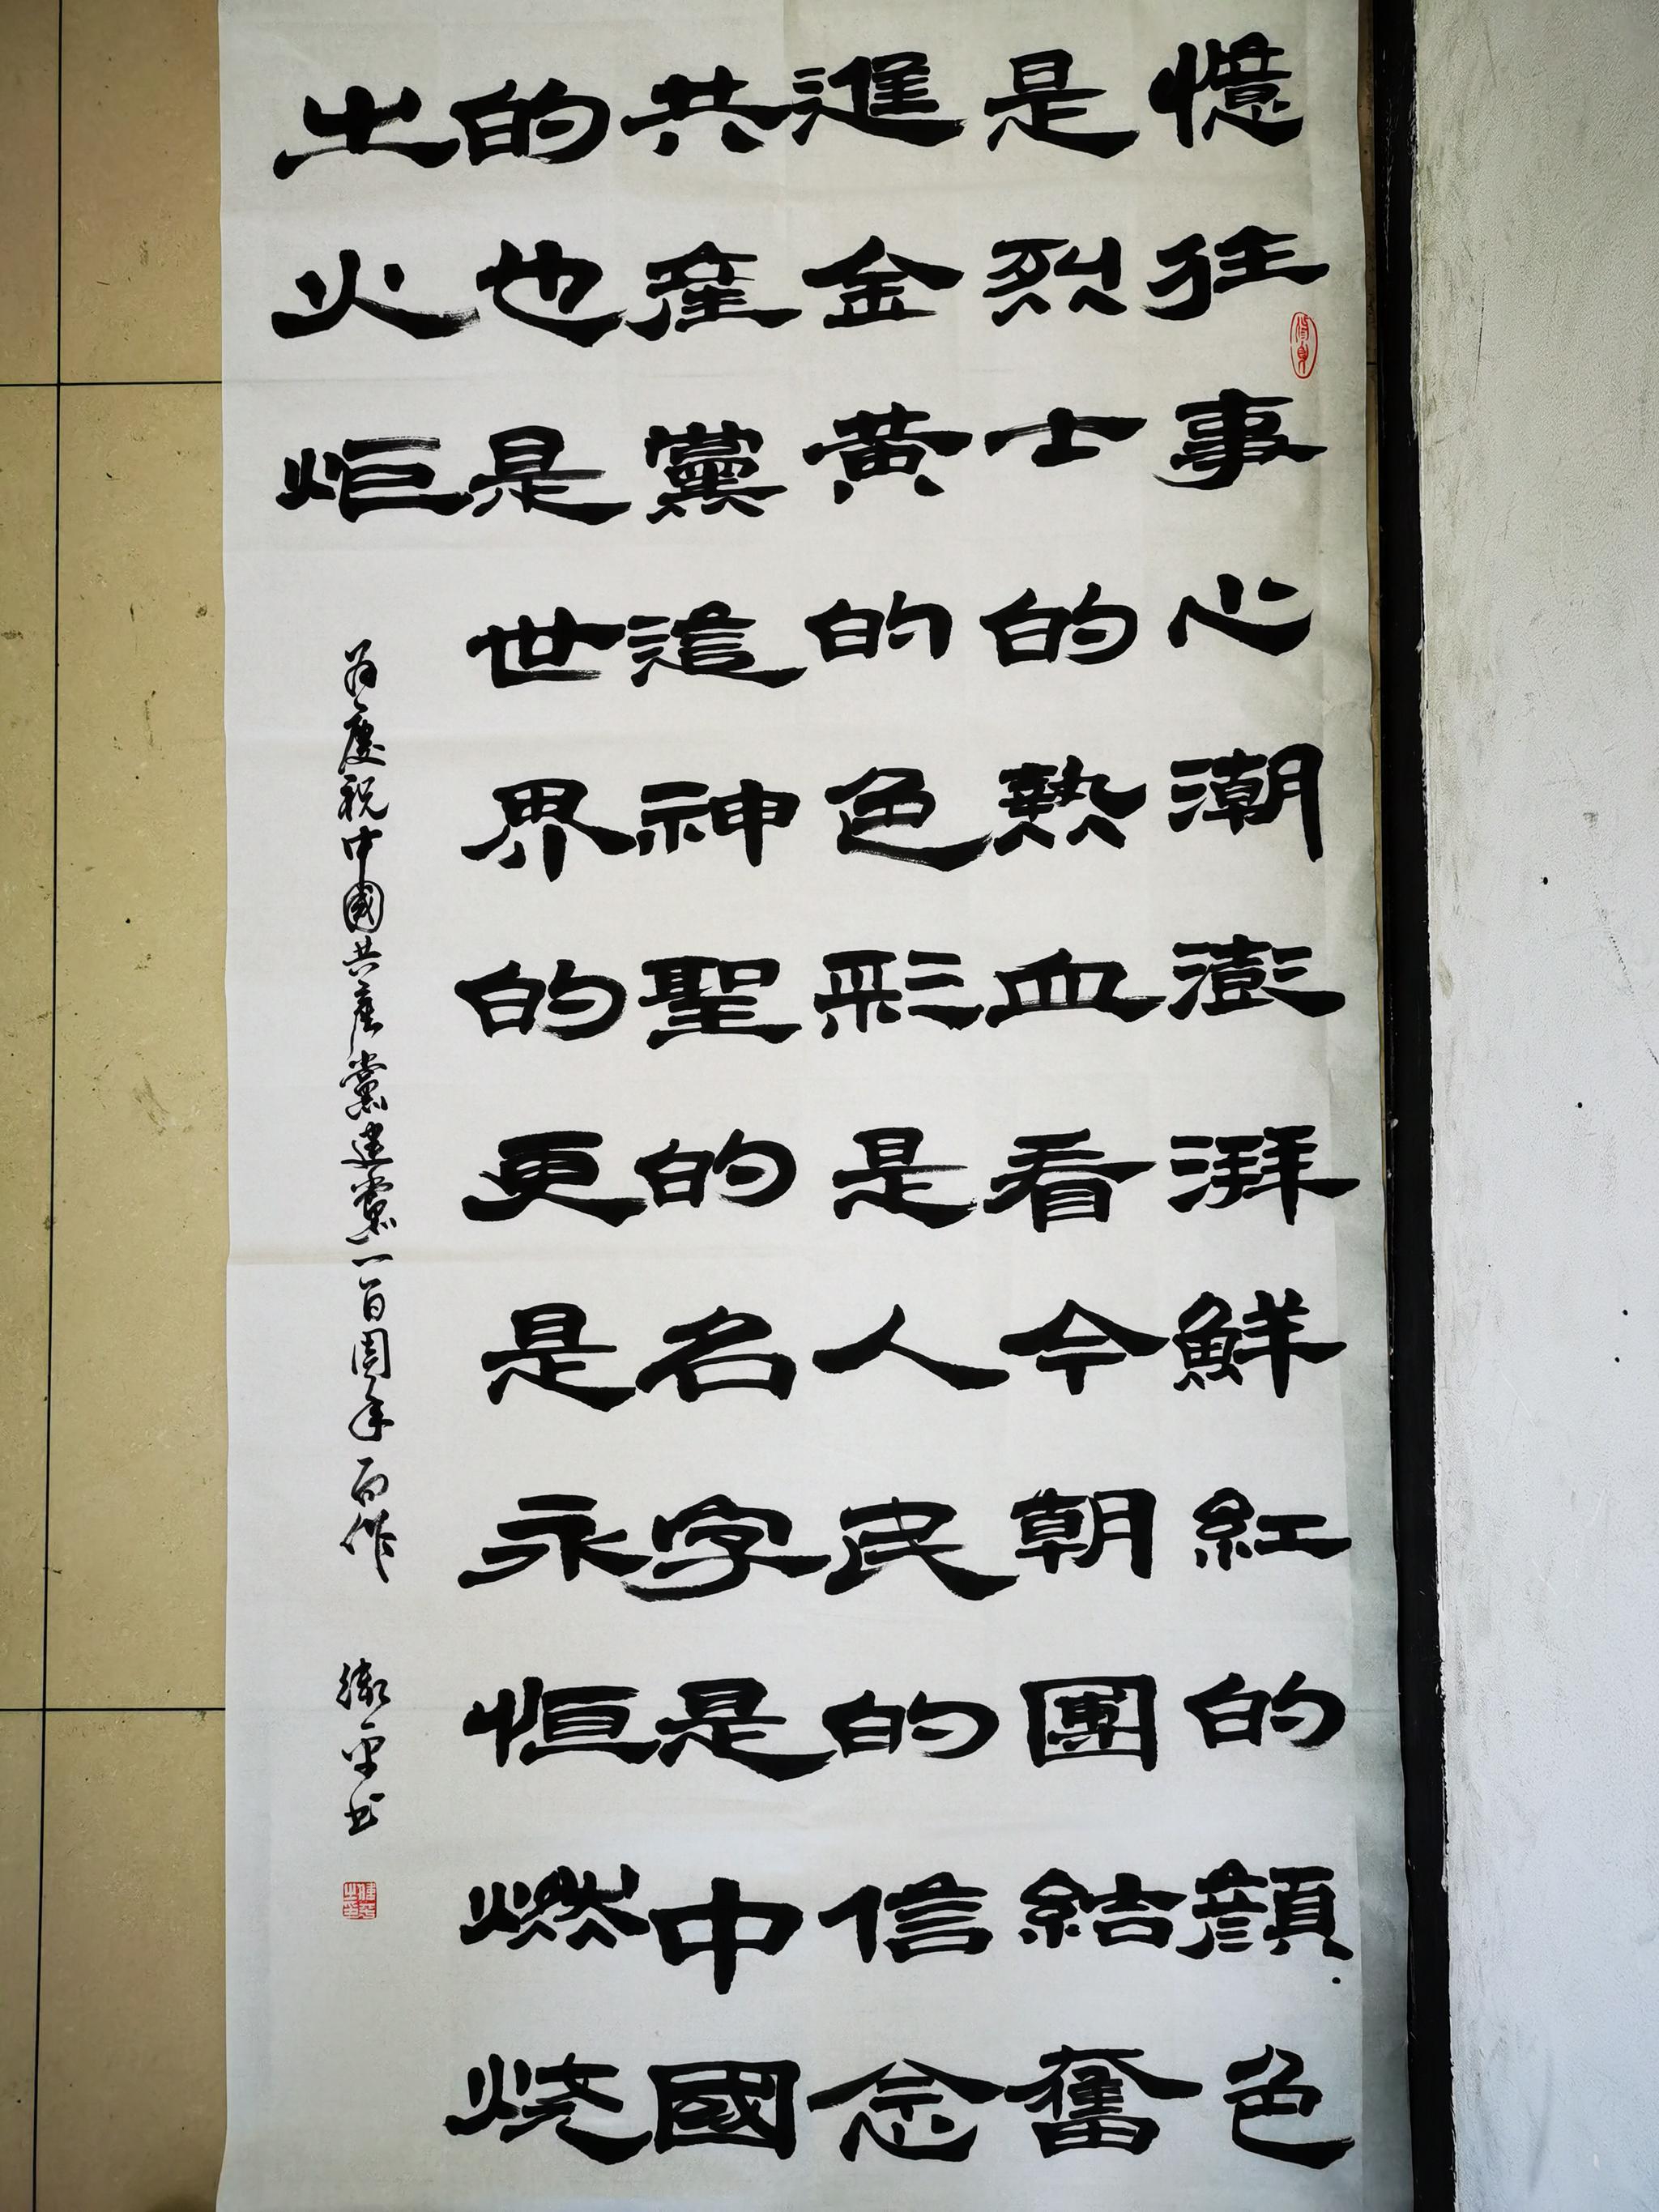 憶往事心潮澎湃鮮紅的顔色
是烈士的熱血看今朝團結奮
進金黃的色彩是人民的信念
共産黨這神聖的名字是中國
的也是世界的更是永恒燃烧
之火炬
为慶祝中國共産黨建黨一百周年而作
平书